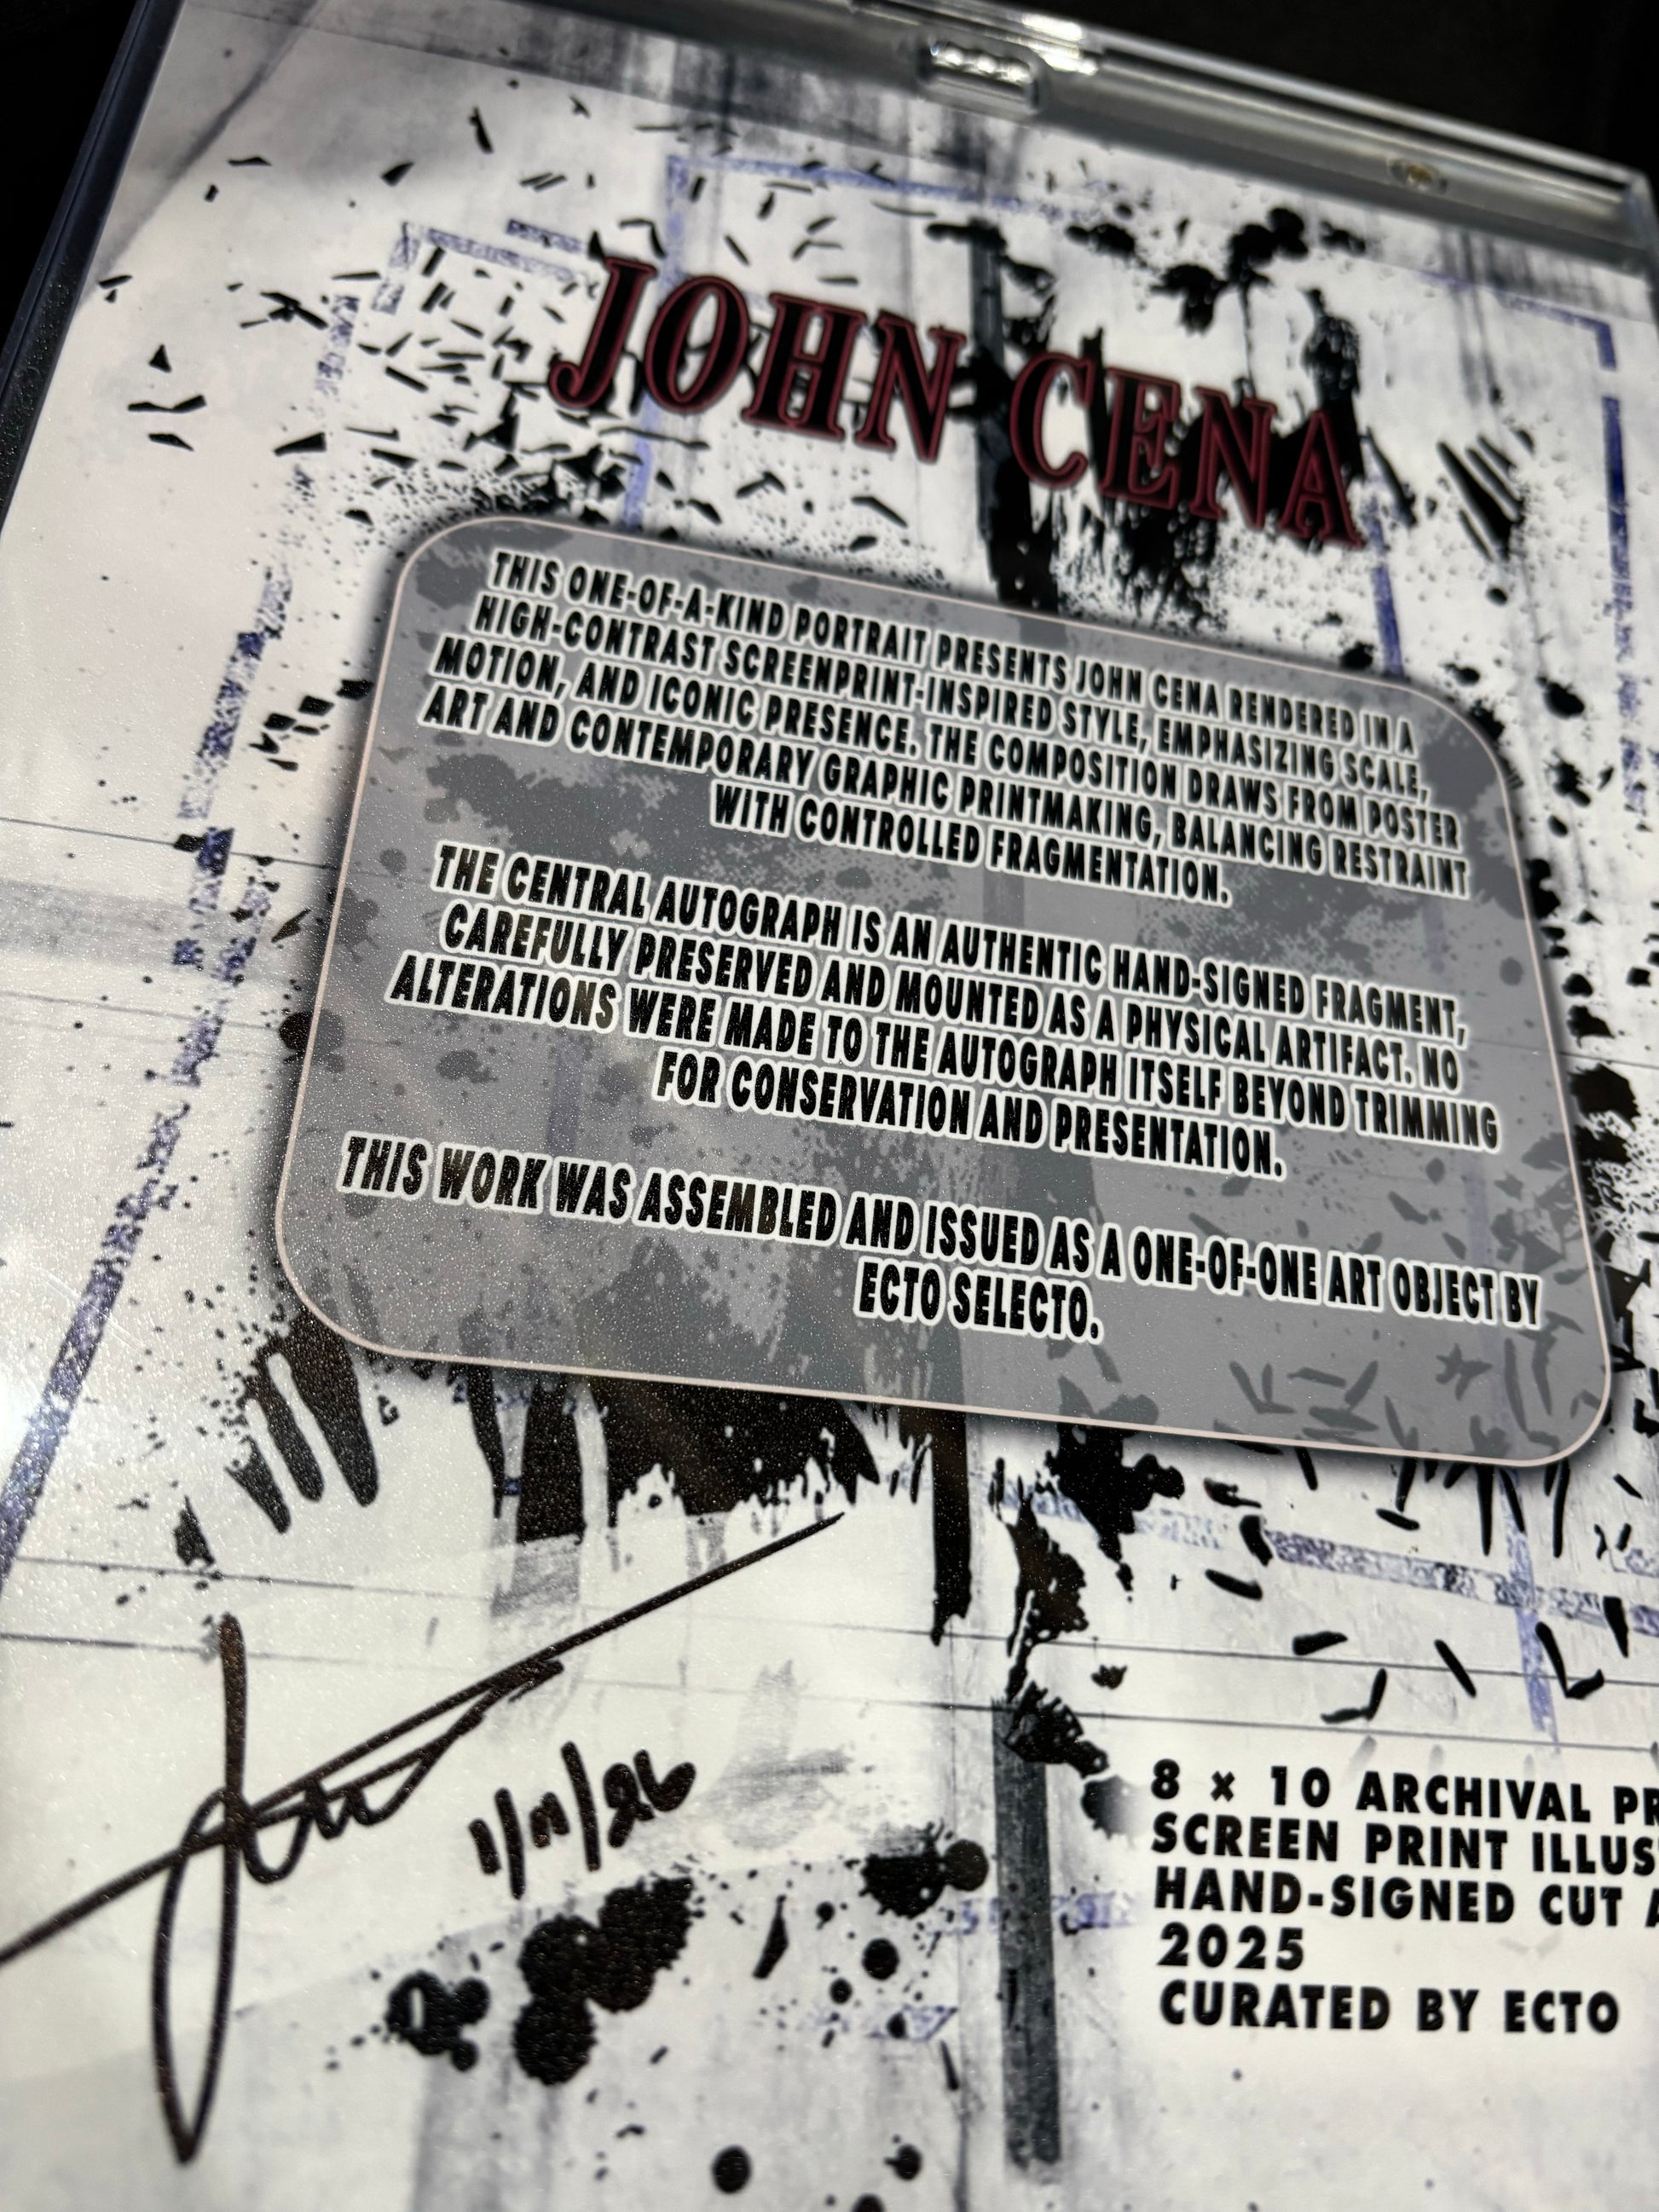 JOHN CENA
THIS ONE-OF-A-KIND PORTRAIT PRESENTS JOHN CENA RENDERED IN A
HIGH-CONTRAST SCREENPRINT-INSPIRED STYLE, EMPHASIZING SCALE,
MOTION, AND ICONIC PRESENCE. THE COMPOSITION DRAWS FROM POSTER
ART AND CONTEMPORARY GRAPHIC PRINTMAKING, BALANCING RESTRAINT
WITH CONTROLLED FRAGMENTATION.
THE CENTRAL AUTOGRAPH IS AN AUTHENTIC HAND-SIGNED FRAGMENT,
CAREFULLY PRESERVED AND MOUNTED AS A PHYSICAL ARTIFACT. NO
ALTERATIONS WERE MADE TO THE AUTOGRAPH ITSELF BEYOND TRIMMING
FOR CONSERVATION AND PRESENTATION.
THIS WORK WAS ASSEMBLED AND ISSUED AS A ONE-OF-ONE ART OBJECT BY
ECTO SELECTO.
8 × 10 ARCHIVAL PR
SCREEN PRINT ILLUS
HAND-SIGNED CUT A
2025
CURATED BY ECTO